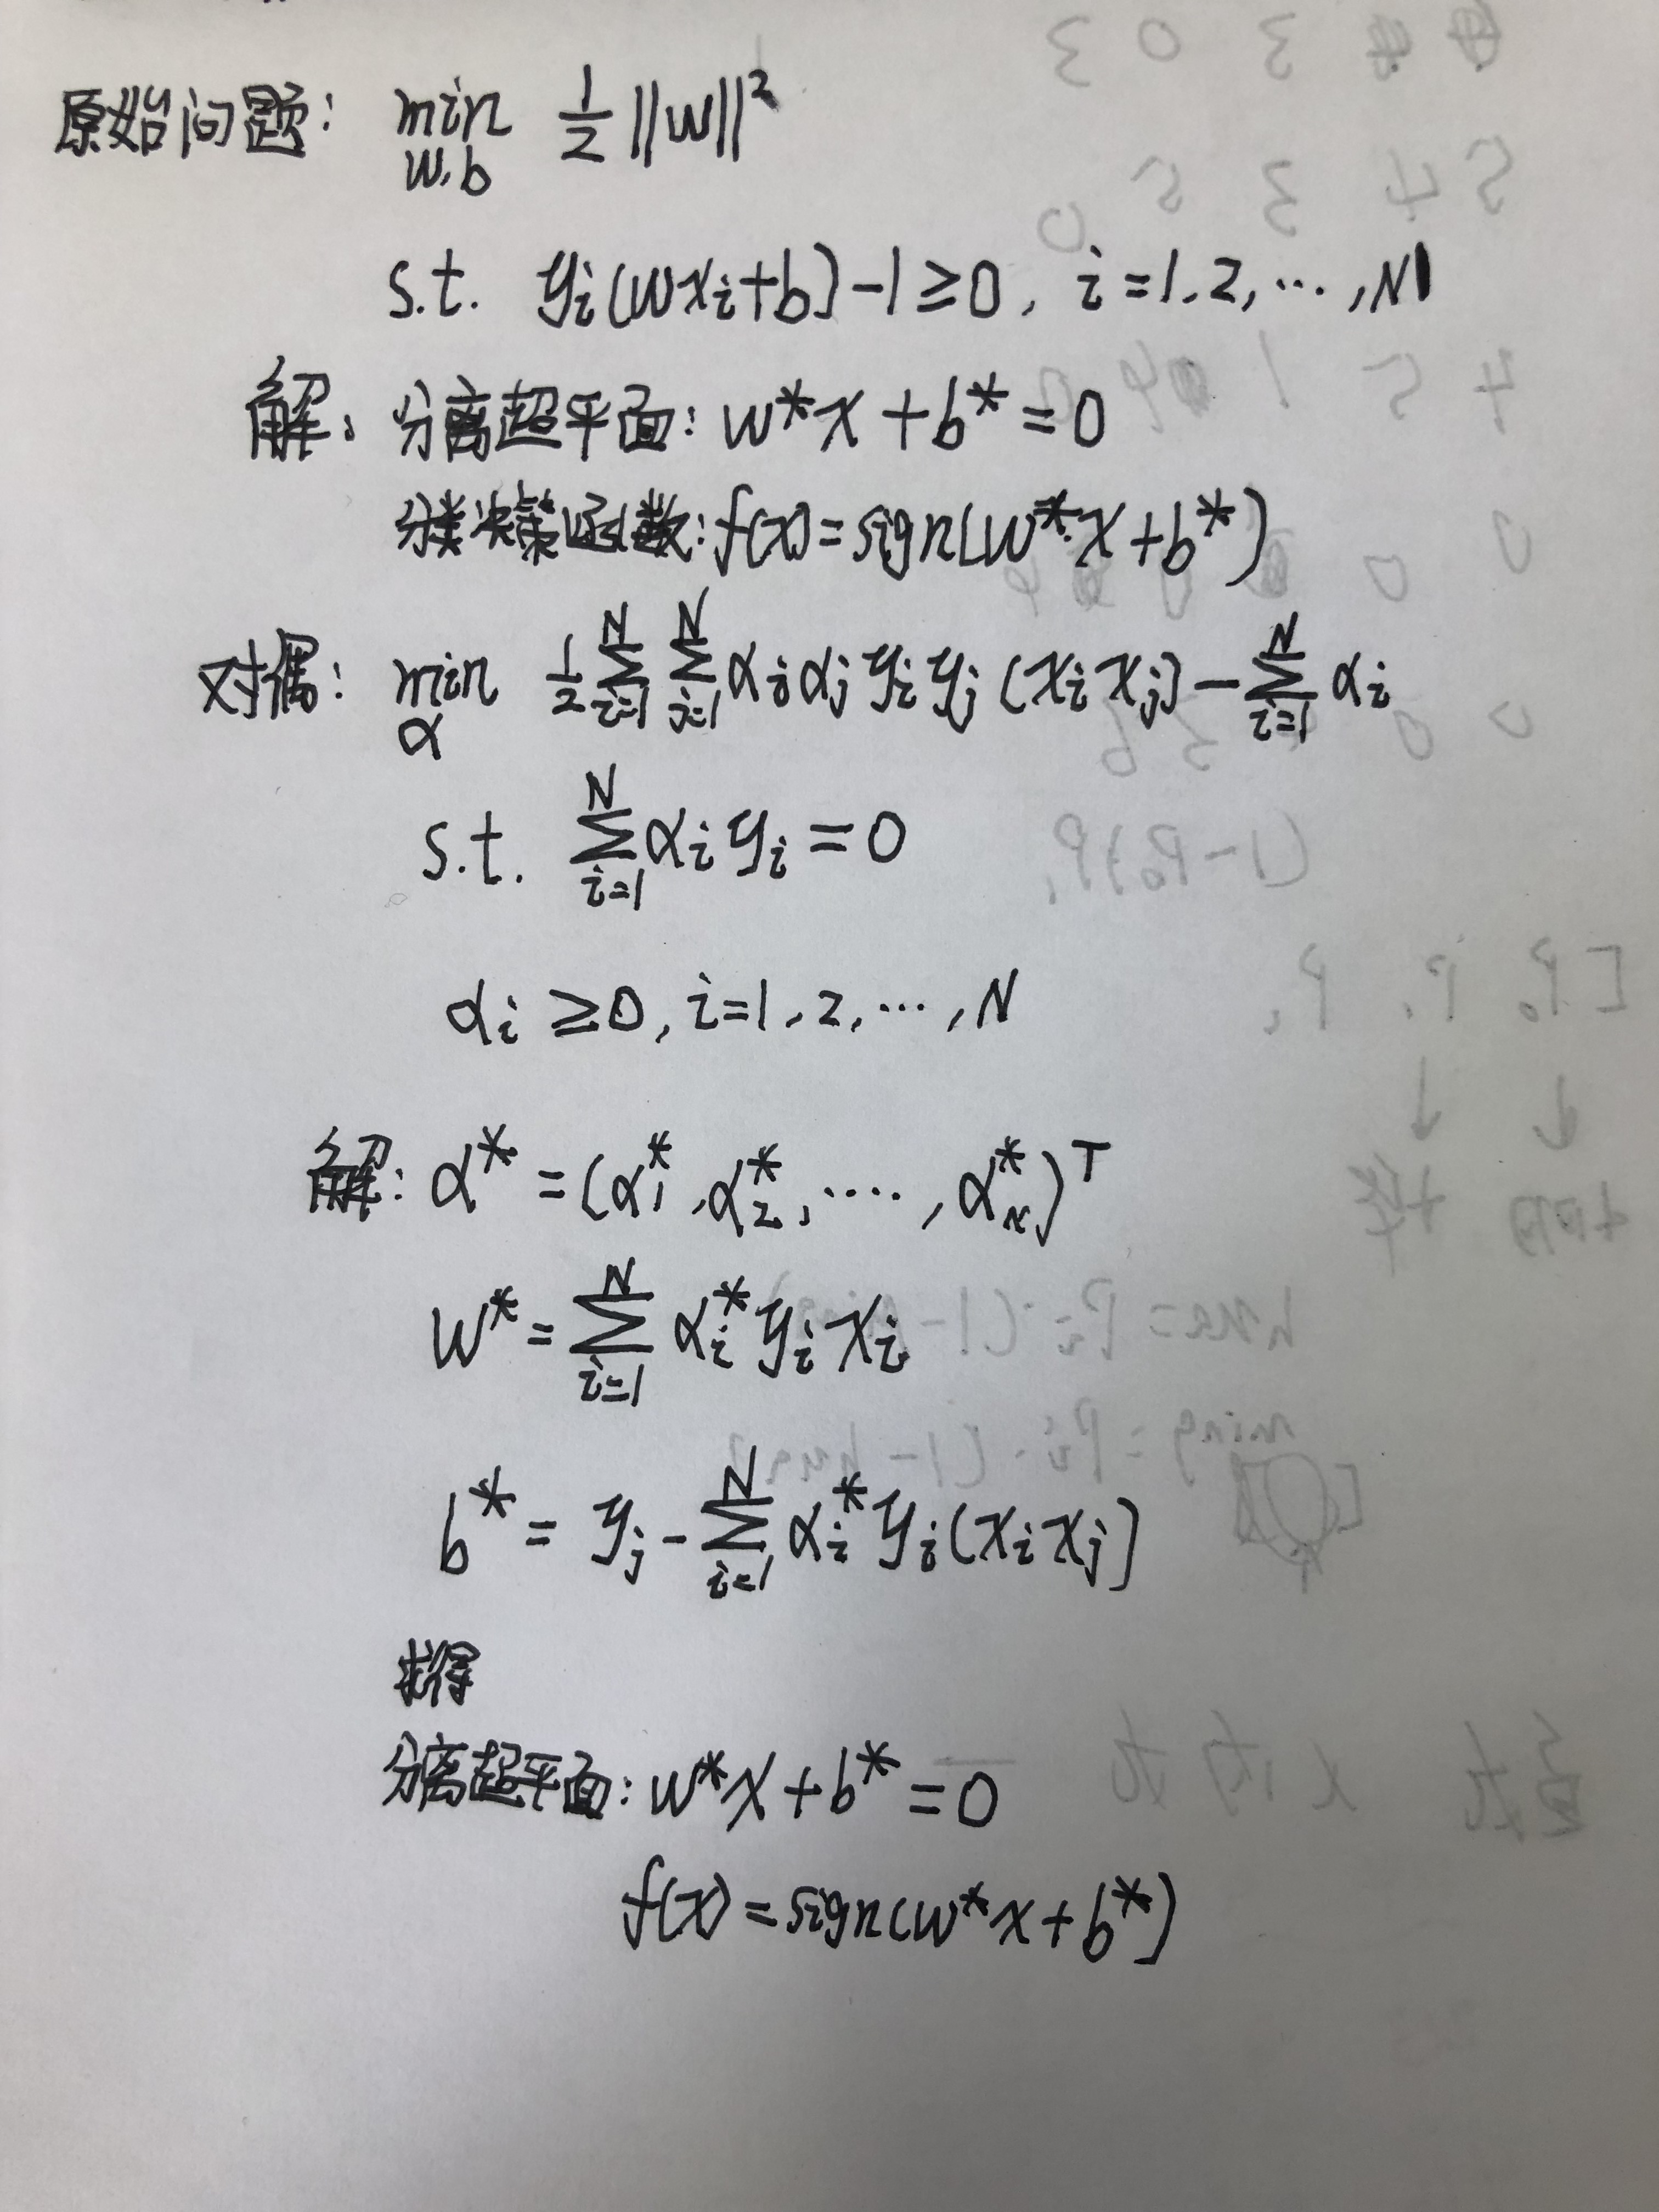 原始问题: min 1/2 ||w||²
w,b
s.t. yᵢ(wxᵢ+b)-1≥0, i=1,2,…,N
解: 分离超平面: w*x+b*=0
分类决策函数: f(x)=sign(w*·x+b*)
对偶: min 1/2 ∑ᵢ₌₁ᴺ ∑ⱼ₌₁ᴺ αᵢαⱼyᵢyⱼ(xᵢxⱼ)-∑ᵢ₌₁ᴺ αᵢ
α
s.t. ∑ᵢ₌₁ᴺ αᵢyᵢ=0
αᵢ≥0, i=1,2,…,N
解: α*=(α₁*,α₂*,….,α_N*)ᵀ
w*=∑ᵢ₌₁ᴺ αᵢ*yᵢxᵢ
b*=yⱼ-∑ᵢ₌₁ᴺ αᵢ*yᵢ(xᵢxⱼ)
求得
分离超平面: w*x+b*=0
f(x)=sign(w*x+b*)